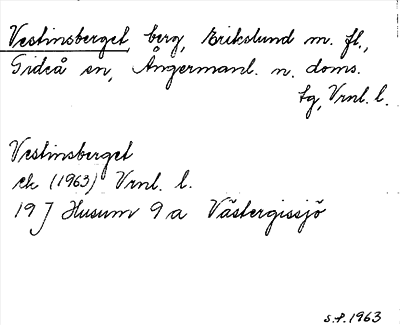 Vestinsberget, berg, Erikslund m. fl.,
Gideå sn, Ångermanl. n. doms.
tg, Vrnl. l.
Vestinsberget
ek (1963) Vrnl. l.
19 J Husum 9 a Västergissjö
s.f. 1963